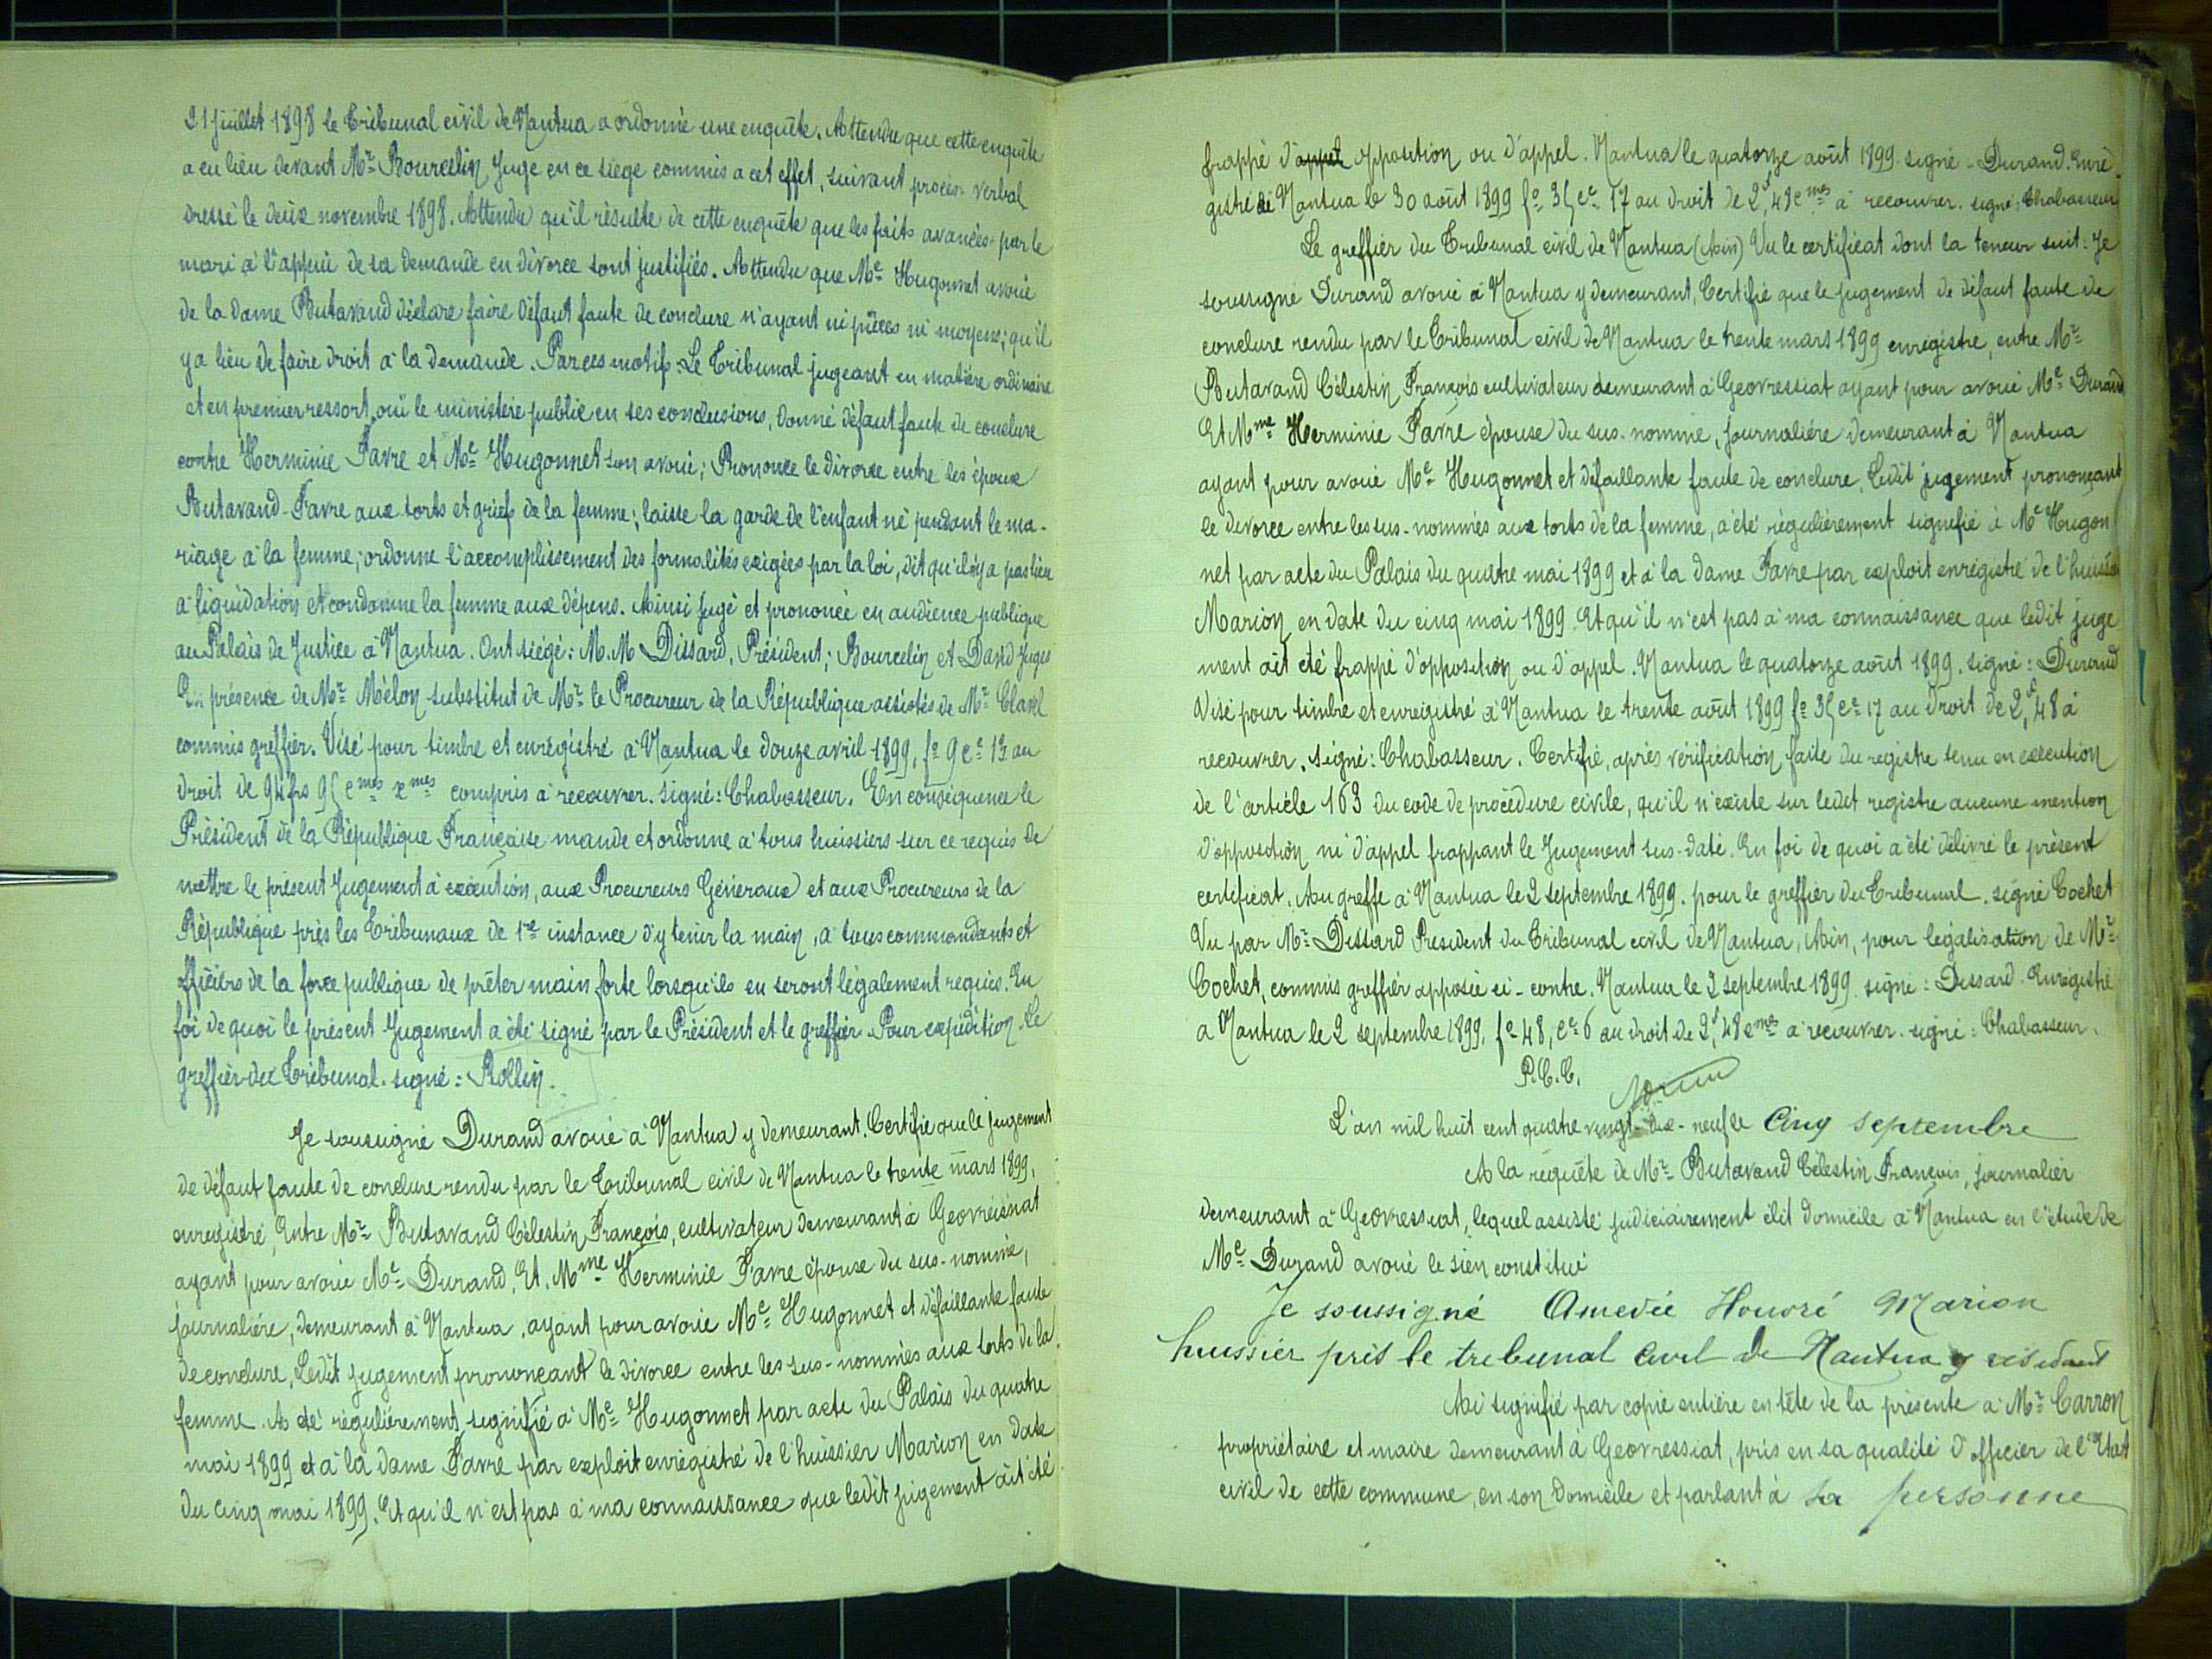 21 juillet 1898 le Tribunal civil de Nantua a ordonné une enquête. Attendu que cette enquête
a eu lieu devant Mr Bourcelin Juge en ce siège commis a cet effet, suivant procès-verbal
dressé le deux novembre 1898. Attendu qu'il résulte de cette enquête que les faits avancés par le
mari à l'appui de sa demande en divorce sont justifiés. Attendu que Me Hugonnet avoué
de la dame Butavand déclare faire défaut faute de conclure n'ayant ni pièces ni moyens; qu'il
y a lieu de faire droit à la demande. Par ces motifs: Le Tribunal jugeant en matière ordinaire
et en premier ressort, ouï le ministère public en ses conclusions, donne défaut faute de conclure
contre Herminie Favre et Me Hugonnet son avoué; Prononce le divorce entre les époux
Butavand-Favre aux torts et griefs de la femme; laisse la garde de l'enfant né pendant le ma-
riage à la femme; ordonne l'accomplissement des formalités exigées par la loi, dit qu'il n'y a pas lieu
à liquidation et condamne la femme aux dépens. Ainsi jugé et prononcé en audience publique
au Palais de Justice à Nantua. Ont siégé: M.M Dissard, Président; Bourcelin et David Juges
En présence de Mr Mélon substitut de Mr le Procureur de la République assistés de Mr Clavel
commis greffier. Visé pour timbre et enregistré à Nantua le douze avril 1899, fo 9 ce 13 au
droit de 94 frs 95 cmes xmes compris à recouvrer. signé: Chabasseur. En conséquence le
Président de la République Française mande et ordonne à tous huissiers sur ce requis de
mettre le présent Jugement à exécution, aux Procureurs Généraux et aux Procureurs de la
République près les Tribunaux de 1re instance d'y tenir la main, à tous commandants et
officiers de la force publique de prêter main forte lorsqu'ils en seront légalement requis. En
foi de quoi le présent Jugement a été signé par le Président et le greffier. Pour expédition. Le
greffier du Tribunal. signé: Rollin.
Je soussigné Durand avoué à Nantua y demeurant. Certifie que le jugement
de défaut faute de conclure rendu par le Tribunal civil de Nantua le trente mars 1899,
enregistré, Entre Mr Butavand Célestin François, cultivateur demeurant à Geovreissiat
ayant pour avoué Me Durand. Et. Mme Herminie Favre épouse du sus-nommé,
journalière, demeurant à Nantua, ayant pour avoué Me Hugonnet et défaillante faute
de conclure, Ledit jugement prononçant le divorce entre les sus-nommés aux torts de la
femme. A été régulièrement signifié à Me Hugonnet par acte du Palais du quatre
mai 1899 et à la dame Favre par exploit enregistré de l'huissier Marion en date
du cinq mai 1899. Et qu'il n'est pas à ma connaissance que ledit jugement ait été
frappé d'appel opposition ou d'appel. Nantua le quatorze août 1899. signé - Durand. Enre-
gistré à Nantua le 30 août 1899 fo 35 ce 17 au droit de 2f,48 cmes à recouvrer. signé: Chabasseur
Le greffier du Tribunal civil de Nantua (Ain) Vu le certificat dont la teneur suit. Je
soussigné Durand avoué à Nantua y demeurant, Certifie que le jugement de défaut faute de
conclure rendu par le Tribunal civil de Nantua le trente mars 1899 enregistré, entre Mr
Butavand Célestin François cultivateur demeurant à Geovressiat ayant pour avoué Me Durand
Et Mme Herminie Favre épouse du sus-nommé, journalière demeurant à Nantua
ayant pour avoué Me Hugonnet et défaillante faute de conclure, Ledit jugement prononçant
le divorce entre les sus-nommés aux torts de la femme, a été régulièrement signifié à Me Hugon
net par acte du Palais du quatre mai 1899 et à la dame Favre par exploit enregistré de l'huissier
Marion en date du cinq mai 1899. Et qu'il n'est pas à ma connaissance que ledit juge
ment ait été frappé d'opposition ou d'appel. Nantua le quatorze août 1899. signé: Durand
Visé pour timbre et enregistré à Nantua le trente août 1899 fo 35 ce 17 au droit de 2f,48 à
recouvrer. signé: Chabasseur. Certifie, après vérification faite du registre tenu en exécution
de l'article 163 du code de procédure civile, qu'il n'existe sur ledit registre aucune mention
d'opposition ni d'appel frappant le Jugement sus-daté. En foi de quoi a été délivré le présent
certificat. Au greffe à Nantua le 2 septembre 1899. pour le greffier du Tribunal. signé Cochet
Vu par Mr Dissard Président du Tribunal civil de Nantua, Ain, pour légalisation de Mr
Cochet, commis greffier apposée ci-contre. Nantua le 2 septembre 1899. signé: Dissard. Enregistré
à Nantua le 2 septembre 1899, fo 48, ce 6 au droit de 2f,48 cmes à recouvrer. signé: Chabasseur.
P.C.C.
L'an mil huit cent quatre vingt-dix-neuf le Cinq septembre
A la requête de Mr Butavand Célestin François, journalier
demeurant à Geovressiat, lequel assisté judiciairement élit domicile à Nantua en l'étude de
Me Durand avoué le sien constitué
Je soussigné Amedée Honoré Marion
huissier près le tribunal civil de Nantua y résidant
Ai signifié par copie entière en tête de la présente à Mr Carron
propriétaire et maire demeurant à Geovressiat, pris en sa qualité d'officier de l'Etat
civil de cette commune, en son domicile et parlant à sa personne